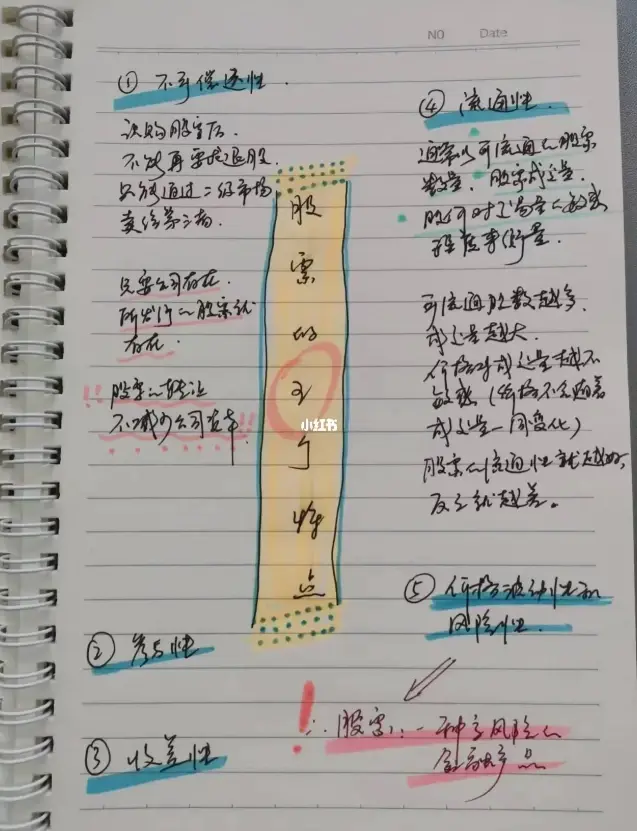 NO Date
① 不可偿还性.
认购股票后.
不能再要求退股.
只能通过二级市场
卖给第三者.
只要公司存在.
所发行的股票就
存在.
!! 股票的转让
不减少公司资本.
② 参与性
③ 收益性
股票的五个特点
小红书
④ 流通性.
通常以可流通的股票
数量、股票成交量.
股价对交易量的敏感
程度来衡量.
可流通股数越多.
成交量越大.
价格对成交量越不
敏感(价格不会随着
成交量一同变化)
股票的流通性就越好,
反之就越差。
⑤ 价格波动性和
风险性.
! ∴股票:一种高风险的
金融产品